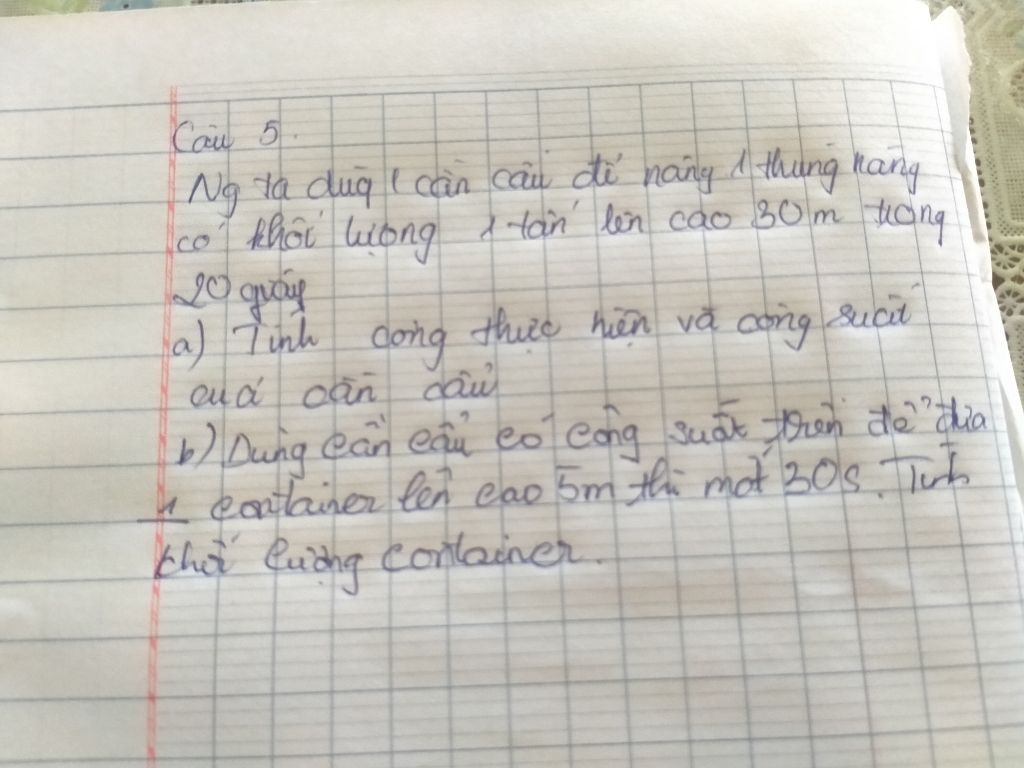 Câu 5.
Ng ta dùg 1 cần cẩu để nâng 1 thùng hàng
có khối lượng 1 tấn lên cao 30m trong
20 giây
a) Tính công thực hiện và công suất
của cần cẩu
b) Dùng cần cẩu có công suất trên để đưa
1 container lên cao 5m thì mất 30s. Tính
khối lượng container.